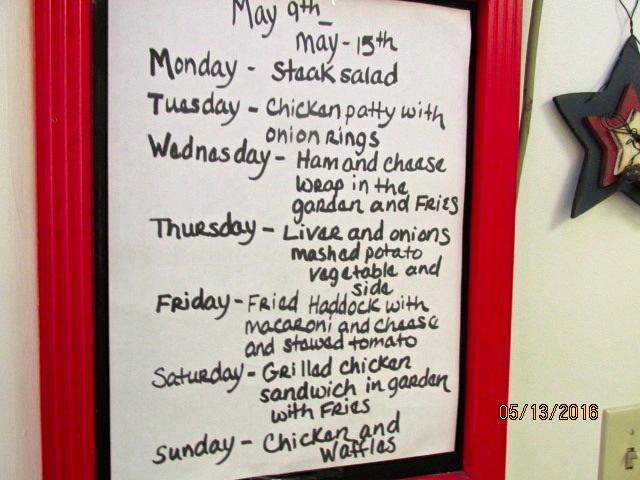 May 9th_
May-15th
Monday - Steak salad
Tuesday - Chicken patty with
onion rings
Wednesday - Ham and cheese
wrap in the
garden and Fries
Thursday - Liver and onions
mashed potato
vegetable and
side
Friday - Fried Haddock with
macaroni and cheese
and stewed tomato
Saturday - Grilled chicken
sandwich in garden
with Fries
Sunday - Chicken and
Waffles
05/13/2016